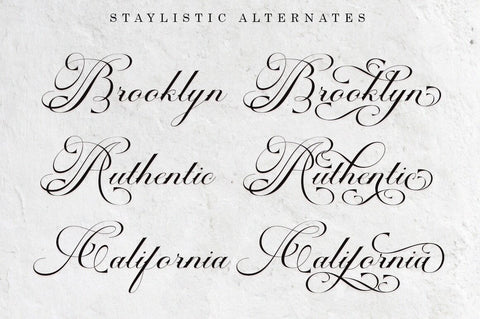 STAYLISTIC ALTERNATES
Brooklyn Brooklyn
Authentic Authentic
California California